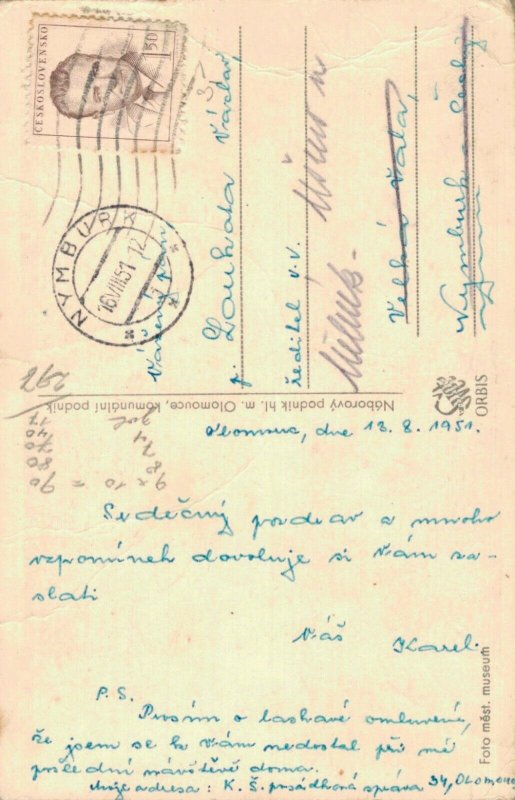 ČESKOSLOVENSKO
50
NYMBURK
16.VIII.51-12
Vážený pán
p. Loukota Václav,
ředitel v.v.
Velká Vala,
Nymburk
Náborový podnik hl. m. Olomouce, komunální podnik
ORBIS
298
9 x 10 = 90
80
70
40
17
Olomouc, dne 13.8.1951.
Srdečný pozdrav a mnoho
vzpomínek dovoluje si Vám za-
slati
Váš Karel.
P.S.
Prosím o laskavé omluvení,
že jsem se k Vám nedostal při mé
poslední návštěvě doma.
Moje adresa: K. Š. posádková správa 34, Olomouc
Foto měst. museum